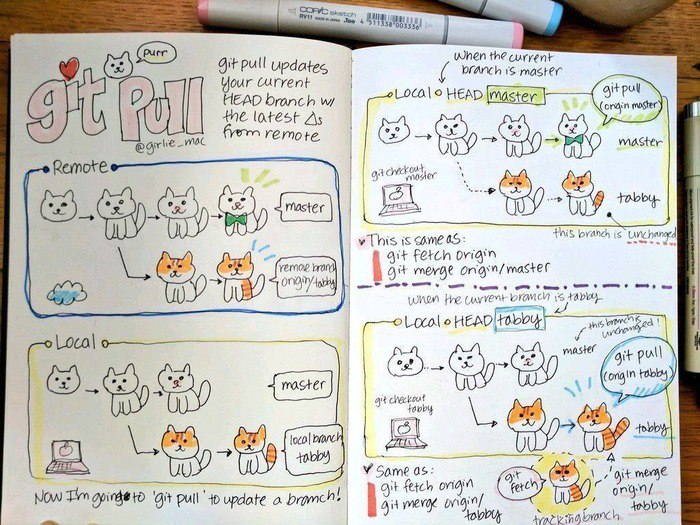 COPIC sketch
RV11 MADE IN JAPAN .Too 4"511338"003336"
git pull
purr
@girlie_mac
git pull updates
your current
HEAD branch w/
the latest Δs
from remote
Remote
master
remove branch
origin/tabby
Local
master
local branch
tabby
Now I'm going to 'git pull' to update a branch!
when the current
branch is master
Local HEAD master
git pull
(origin master)
master
git checkout
master
tabby
this branch is unchanged
This is same as:
git fetch origin
git merge origin/master
when the current branch is tabby
Local HEAD tabby
this branch is
unchanged!
master
git pull
(origin tabby)
git checkout
tabby
tabby
Same as:
git fetch origin
git merge origin/
tabby
git
fetch
git merge
origin/
tabby
tracking branch